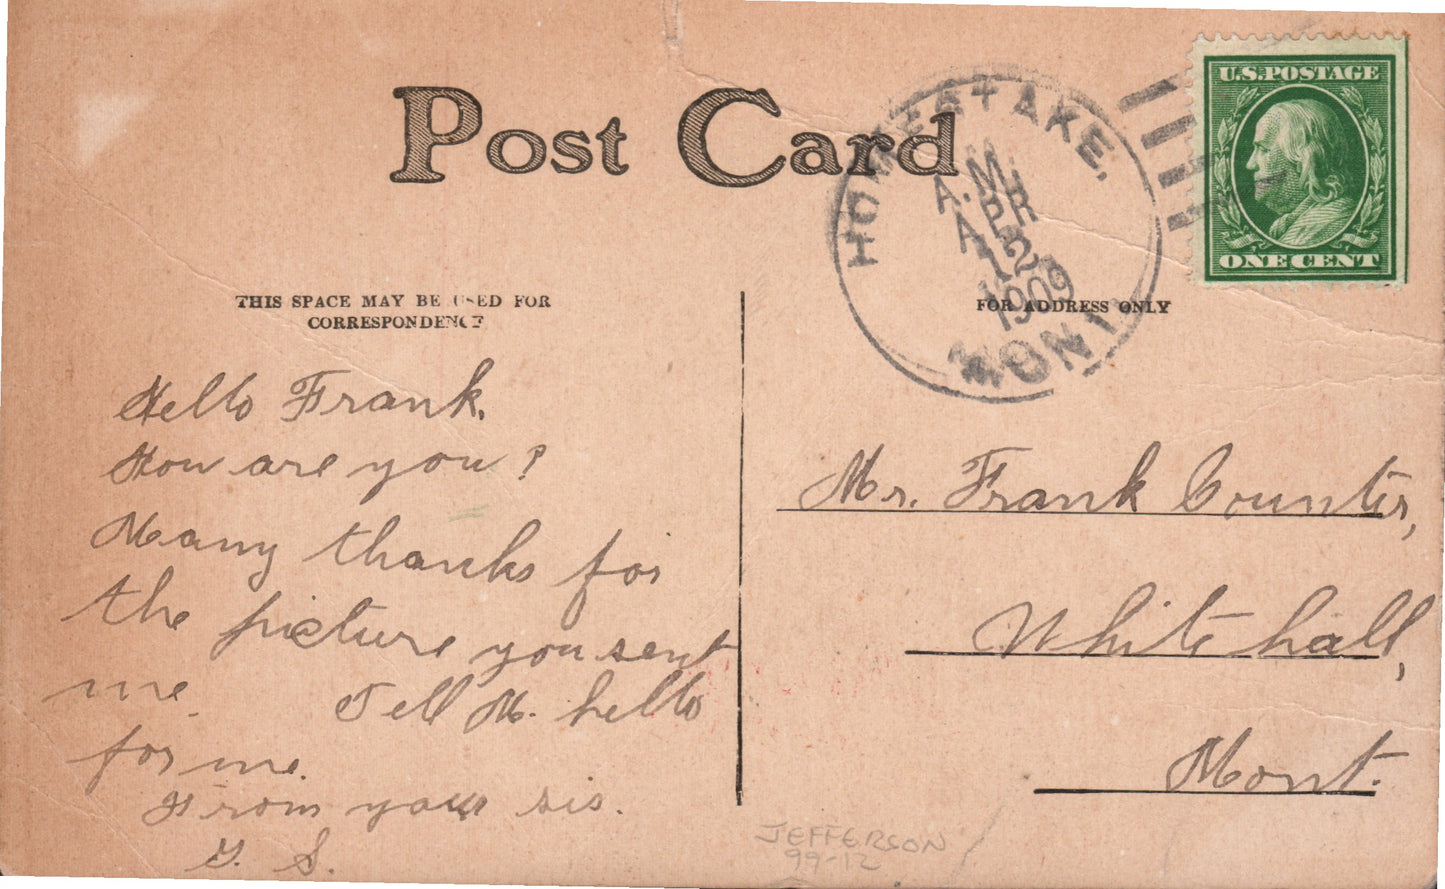 Post Card
U.S. POSTAGE
ONE CENT
HOMESTAKE,
A.M.
APR
1909
MONT.
THIS SPACE MAY BE USED FOR
CORRESPONDENCE
FOR ADDRESS ONLY
Hello Frank.
How are you?
Many thanks for
the picture you sent
me. Tell M. hello
for me.
From your sis.
G. S.
Mr. Frank Counter,
Whitehall,
Mont.
JEFFERSON
99-12